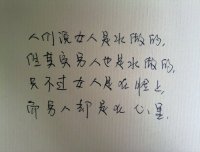 人们说女人是水做的,
但其实男人也是水做的,
只不过女人是在性上,
而男人却是在心里.